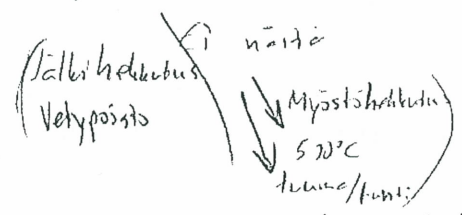 (Jälkihehkutus
Vetypoisto
Ei näitä
Myöstöhehkutus
530°C
tuuma/tunti)